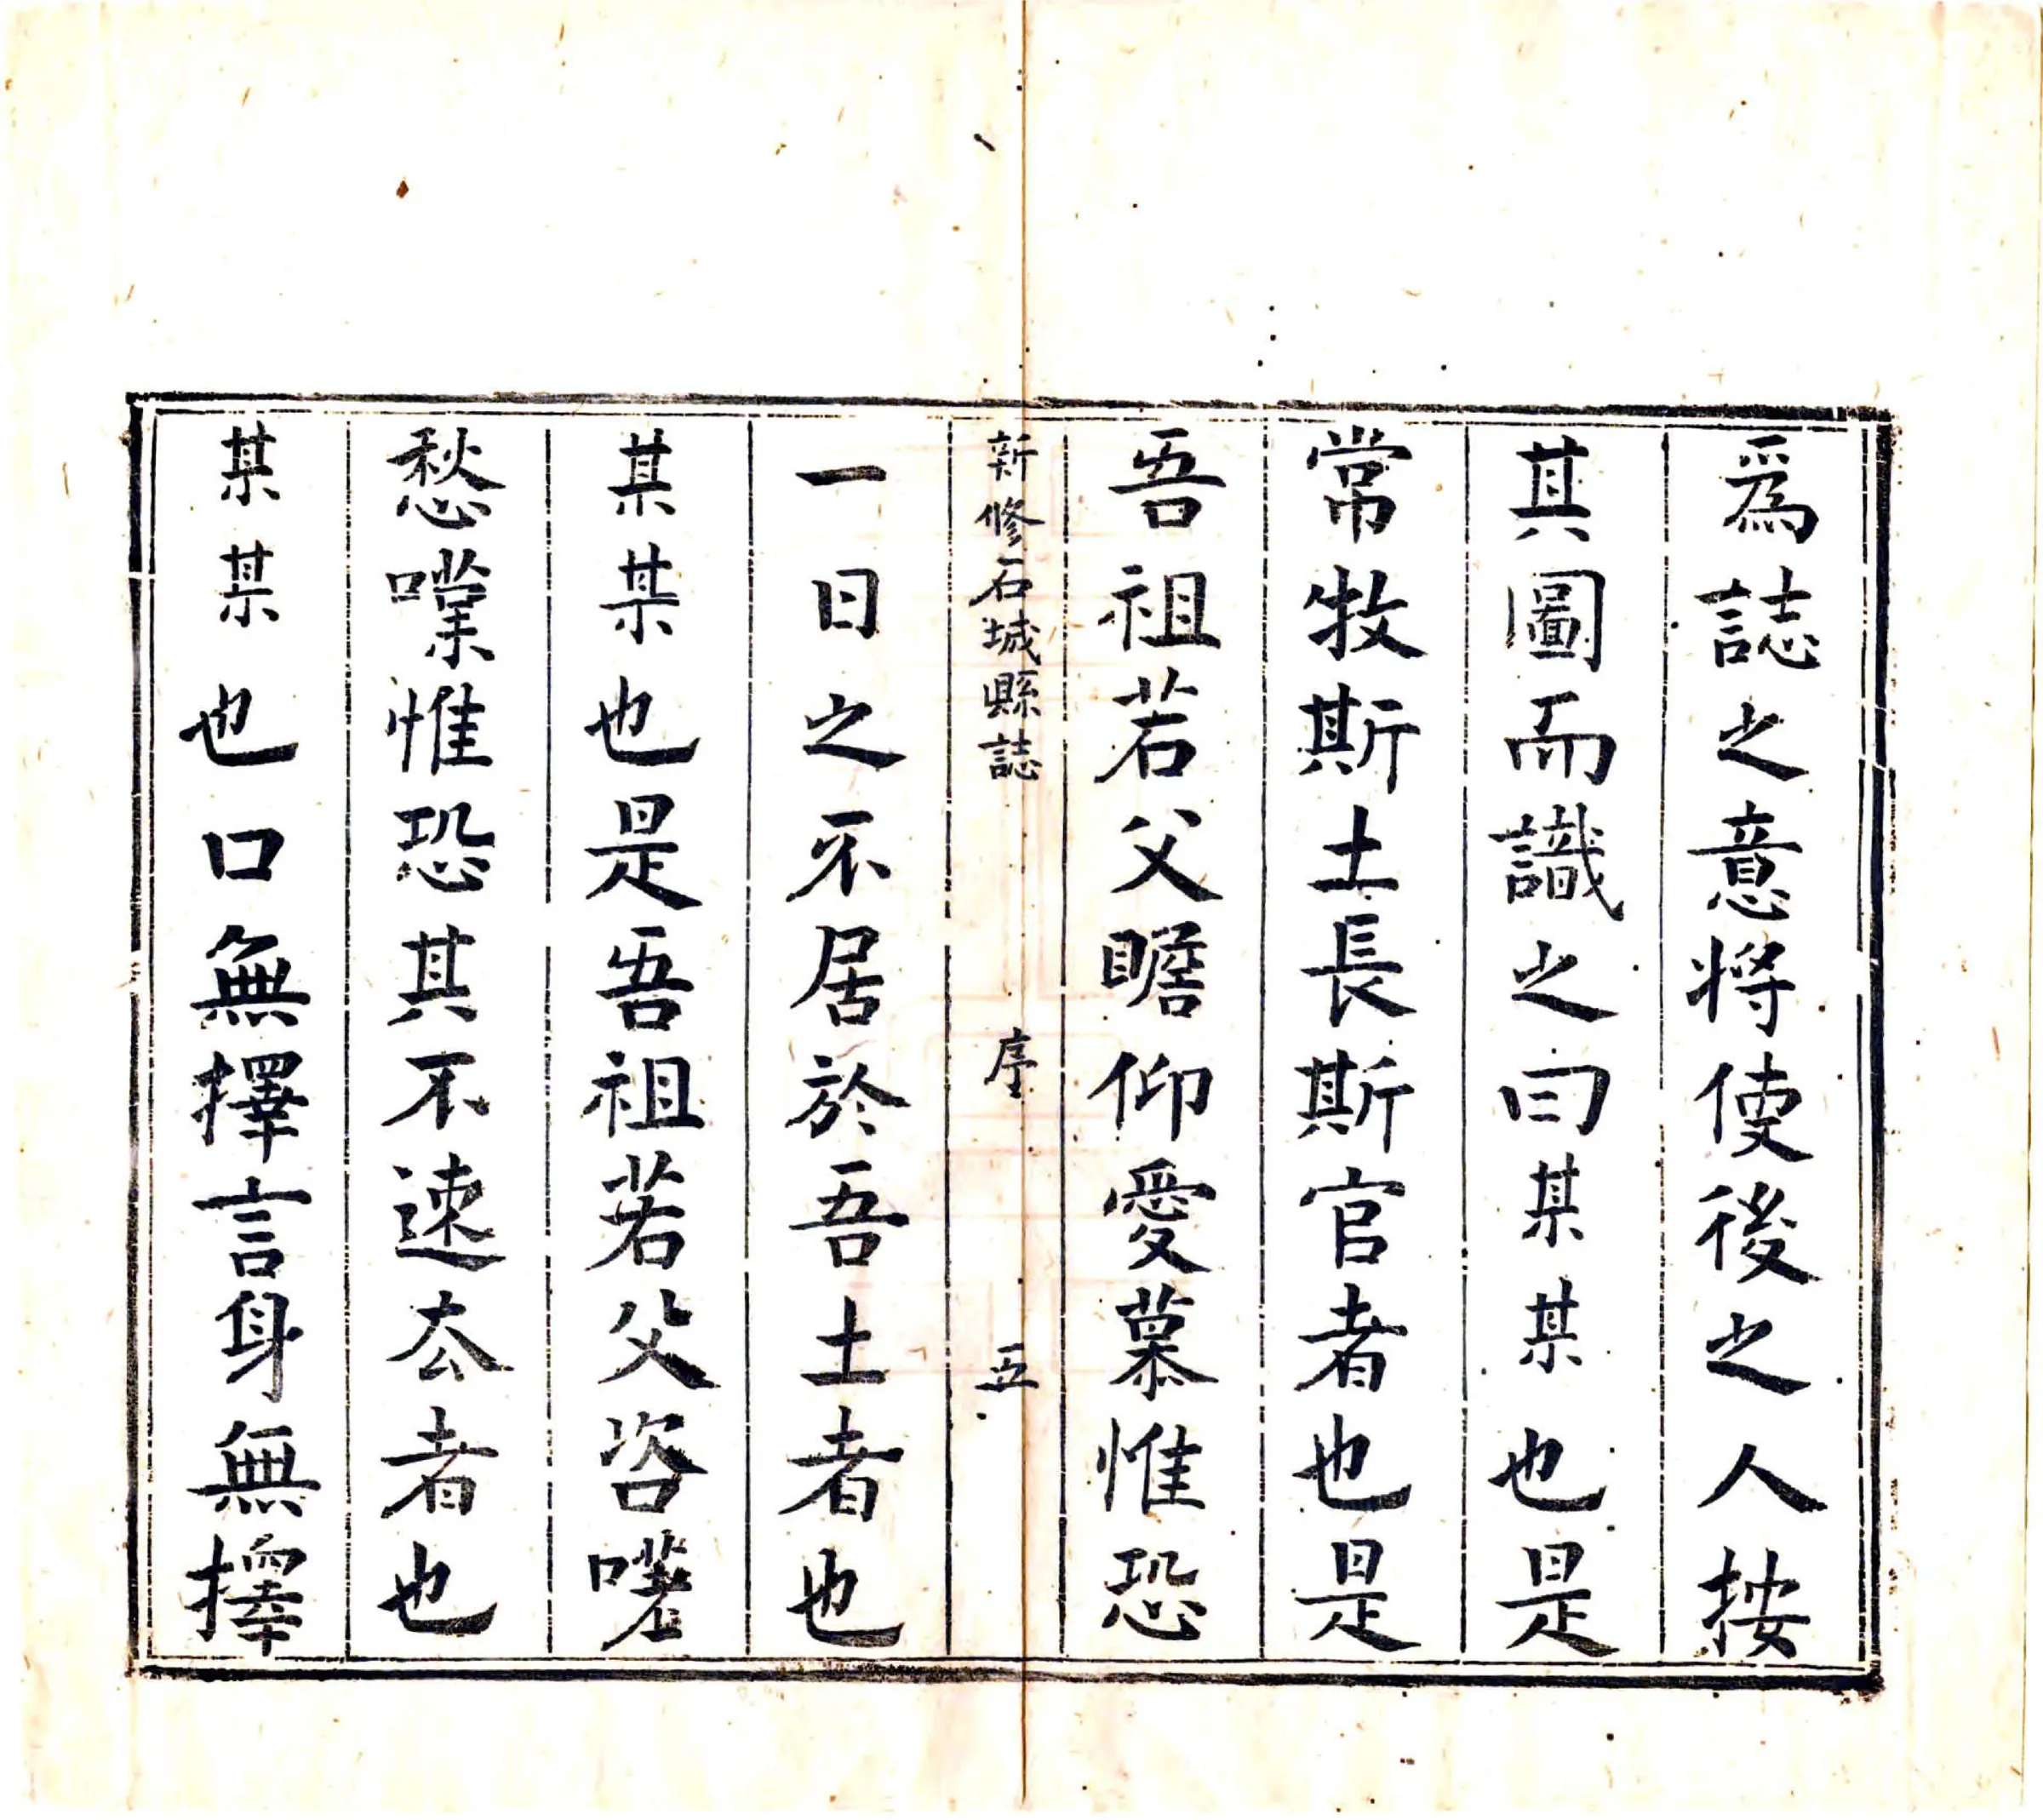 爲誌之意將使後之人按
其圖而識之曰某某也是
常牧斯土長斯官者也是
吾祖若父瞻仰愛慕惟恐
新修石城縣誌 序 五
一日之不居於吾土者也
某某也是吾祖若父咨嗟
愁嘆惟恐其不速去者也
某某也口無擇言身無擇